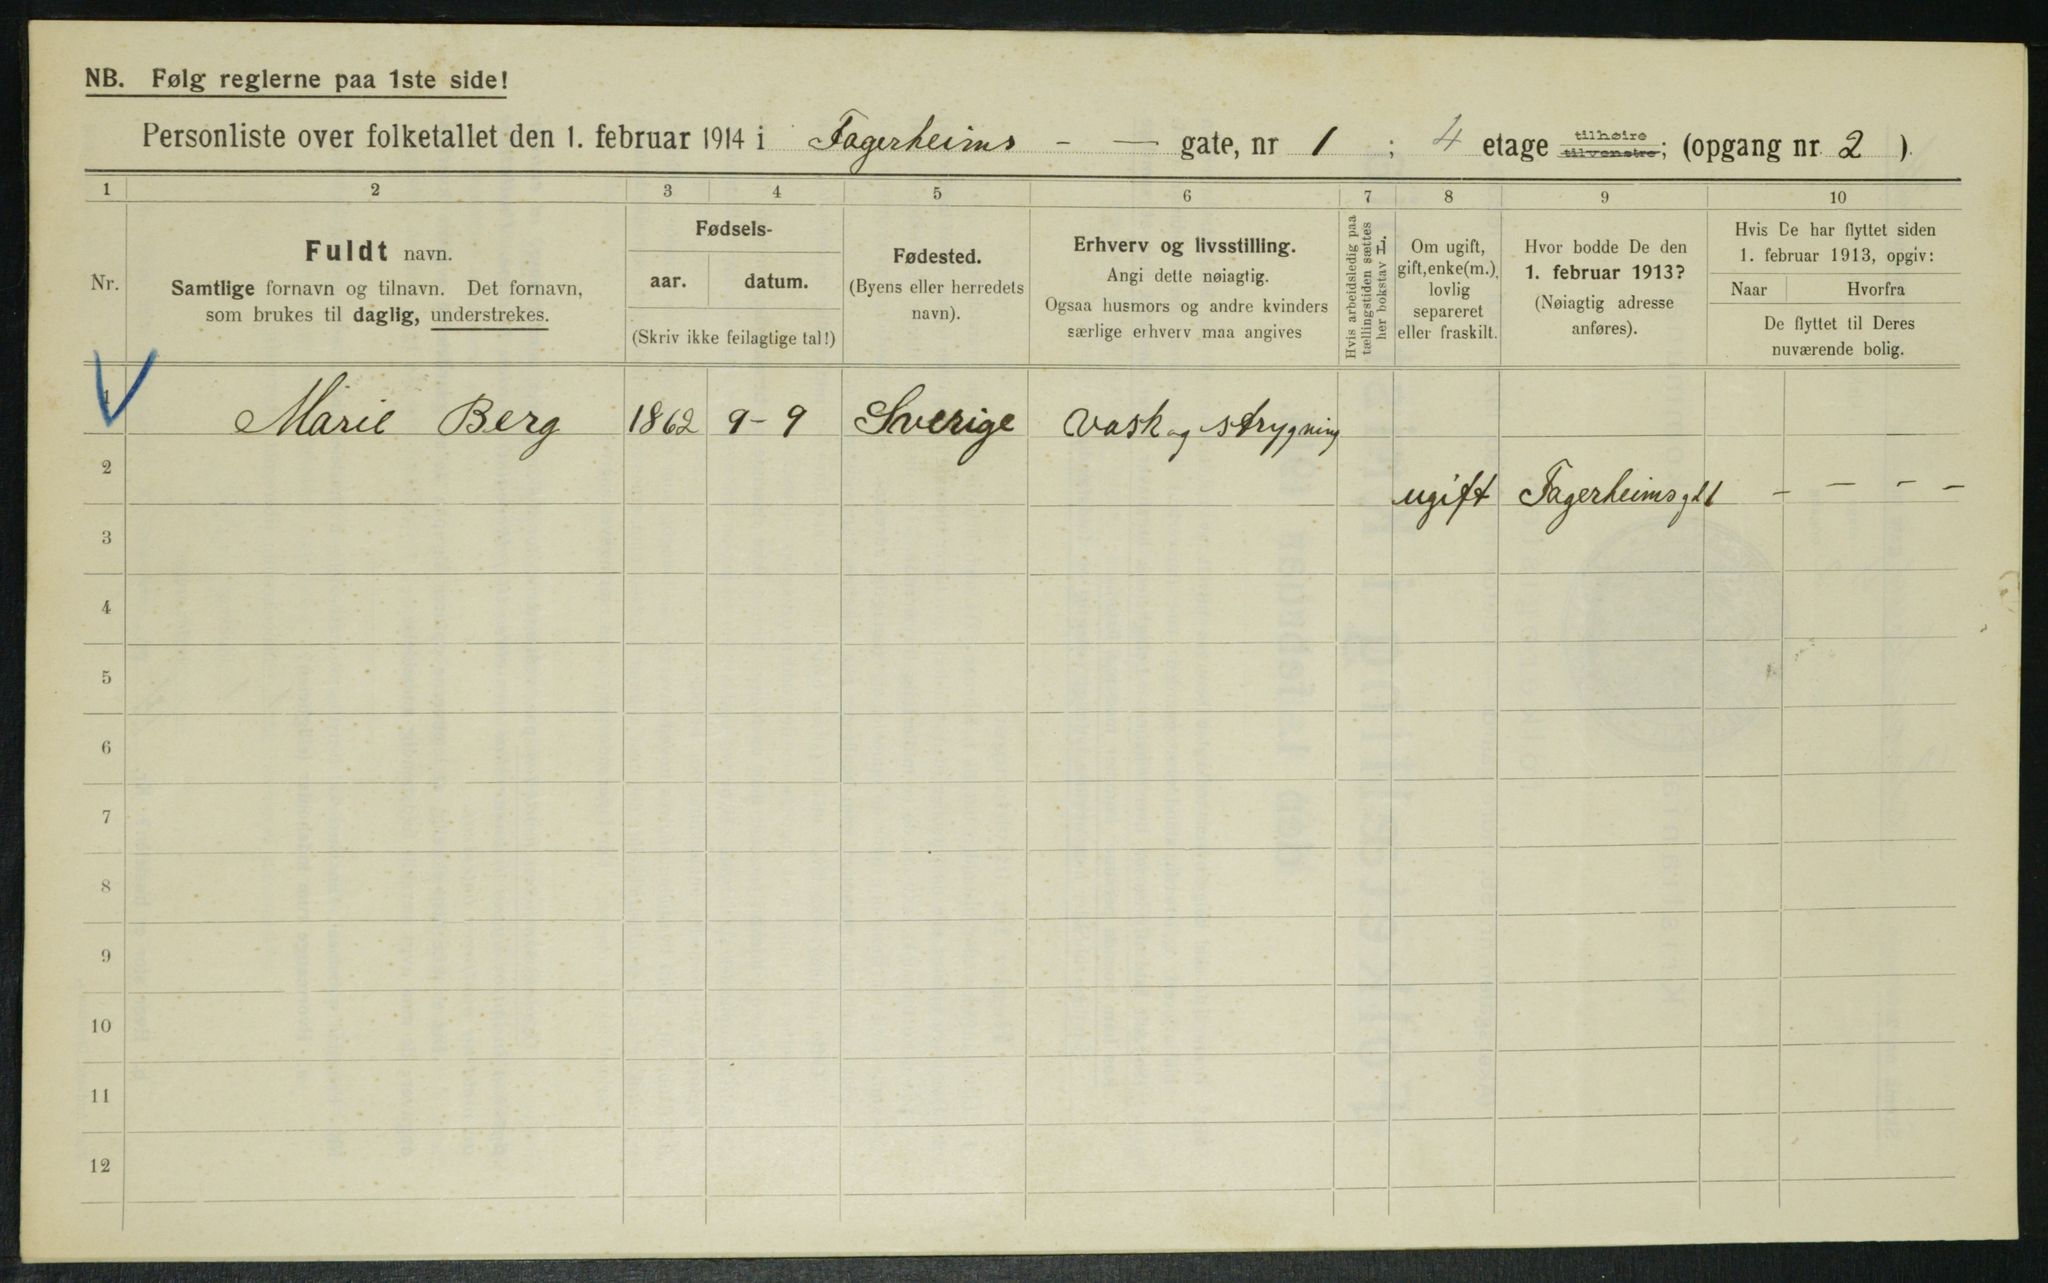 NB. Følg reglerne paa 1ste side!
Personliste over folketallet den 1. februar 1914 i Fagerheims - — gate, nr 1 ; 4 etage tilhøire tilvenstre; (opgang nr. 2 ).
1 2 3 4 5 6 7 8 9 10
Nr.
Fuldt navn.
Samtlige fornavn og tilnavn. Det fornavn,
som brukes til daglig, understrekes.
Fødsels-
aar. datum.
(Skriv ikke feilagtige tal!)
Fødested.
(Byens eller herredets
navn).
Erhverv og livsstilling.
Angi dette nøiagtig.
Ogsaa husmors og andre kvinders
særlige erhverv maa angives
Hvis arbeidsledig paa
tællingstiden sættes
her bokstav H.
Om ugift,
gift, enke(m.),
lovlig
separeret
eller fraskilt.
Hvor bodde De den
1. februar 1913?
(Nøiagtig adresse
anføres).
Hvis De har flyttet siden
1. februar 1913, opgiv:
Naar Hvorfra
De flyttet til Deres
nuværende bolig.
1 Marie Berg 1862 9-9 Sverige Vask og strygning
2 ugift Fagerheimsgt 1 - - - -
3
4
5
6
7
8
9
10
11
12